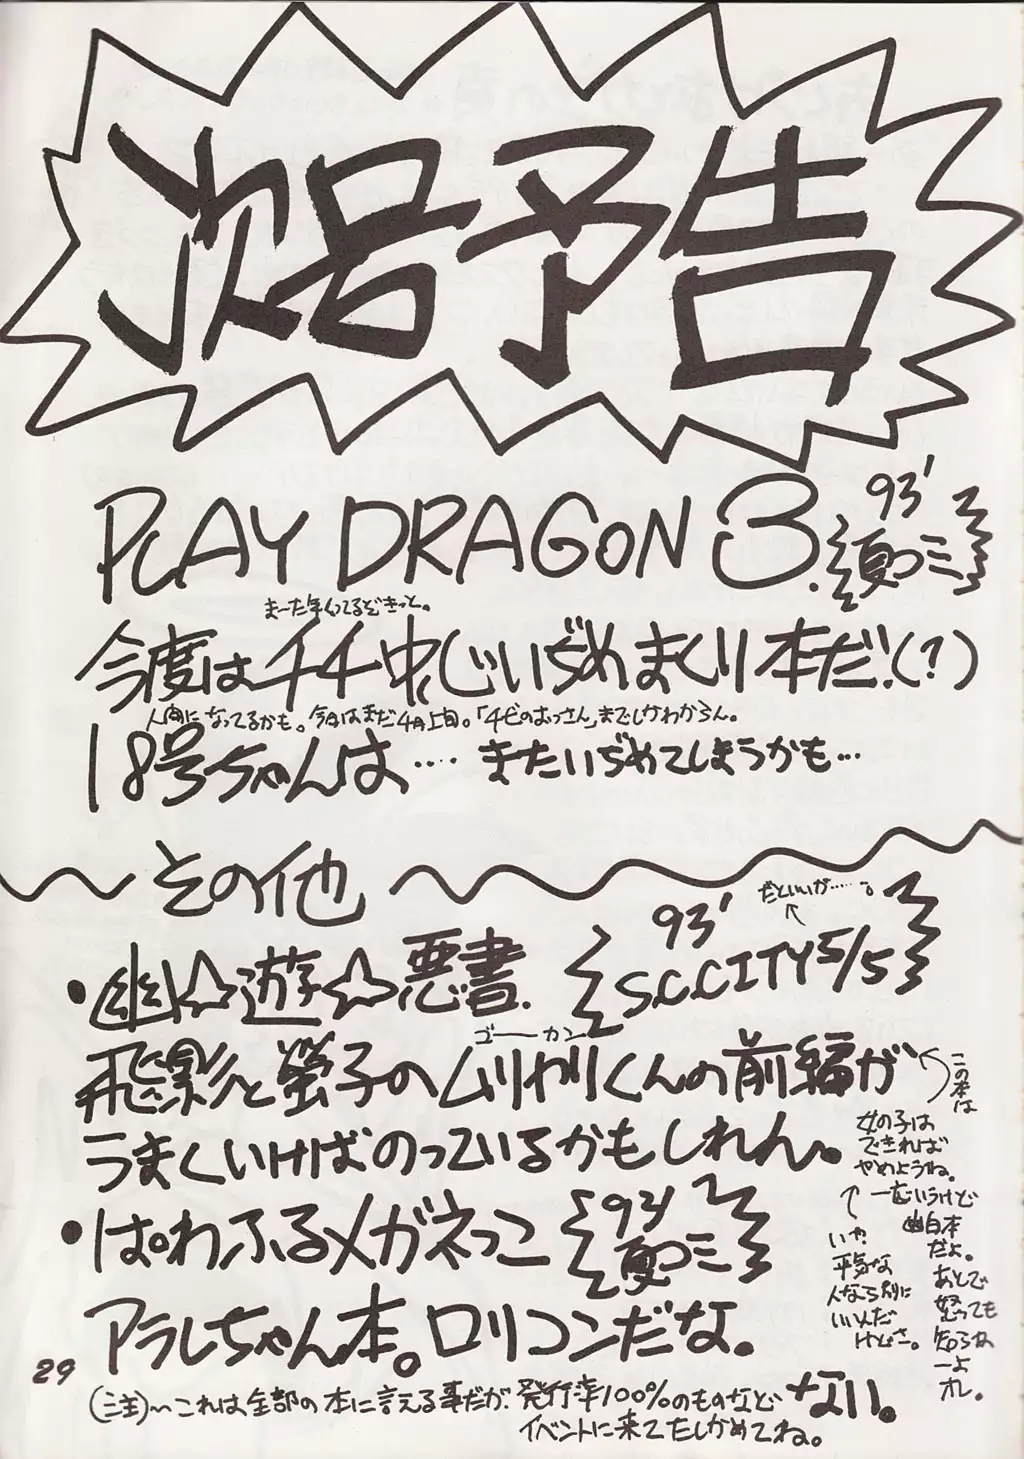 次号予告
PLAY DRAGON 3. 93' 夏コミ
まーた年くってるぞきっと。
今度はチチ中心いぢめまくり本だ!(?)
人間になってるかも。今日はまだ4月上旬。「4だのおっさん」までしかわからん。
18号ちゃんは‥‥またいぢめてしまうかも…
その他
・幽☆遊☆悪書. 93' S.C.CITY 5/5
だといいが……。
ゴーカン
飛影と螢子のムリヤリくんの前編が
うまくいけばのっているかもしれん。
この本は
女の子は
できれば
やめようね。
一応いうけど
幽白本
だよ。
あとで
怒っても
知らね
ーよ
オレ。
いや
平気な
人なら別に
いいんだ
けどさ。
・ぱわふるメガネっこ 93' 夏コミ
アラレちゃん本。ロリコンだな。
29
(注)〜これは全部の本に言える事だが、発行率100%のものなどない。
イベントに来てたしかめてね。